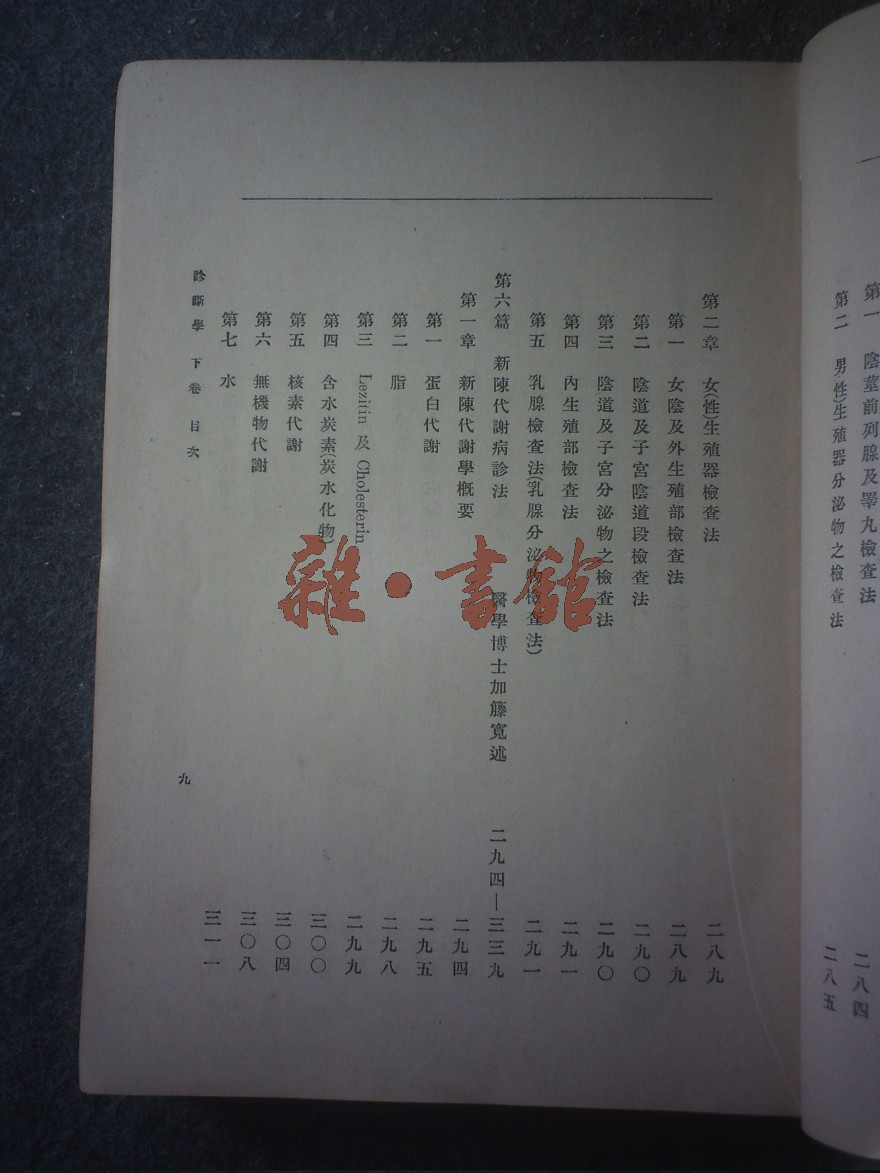 第一　陰莖前列腺及睪丸檢查法　二八四
第二　男(性)生殖器分泌物之檢查法　二八五
第二章　女(性)生殖器檢查法　二八九
第一　女陰及外生殖部檢查法　二八九
第二　陰道及子宮陰道段檢查法　二九〇
第三　陰道及子宮分泌物之檢查法　二九〇
第四　內生殖部檢查法　二九一
第五　乳腺檢查法(乳腺分泌物檢查法)　二九一
第六篇　新陳代謝病診法　醫學博士加籐寬述　二九四—三三九
第一章　新陳代謝學概要　二九四
第一　蛋白代謝　二九五
第二　脂　二九八
第三　Lezitin 及 Cholesterin　二九九
第四　含水炭素(炭水化物)　三〇〇
第五　核素代謝　三〇四
第六　無機物代謝　三〇八
第七　水　三一一
診斷學　下卷　目次　九
雜·書館